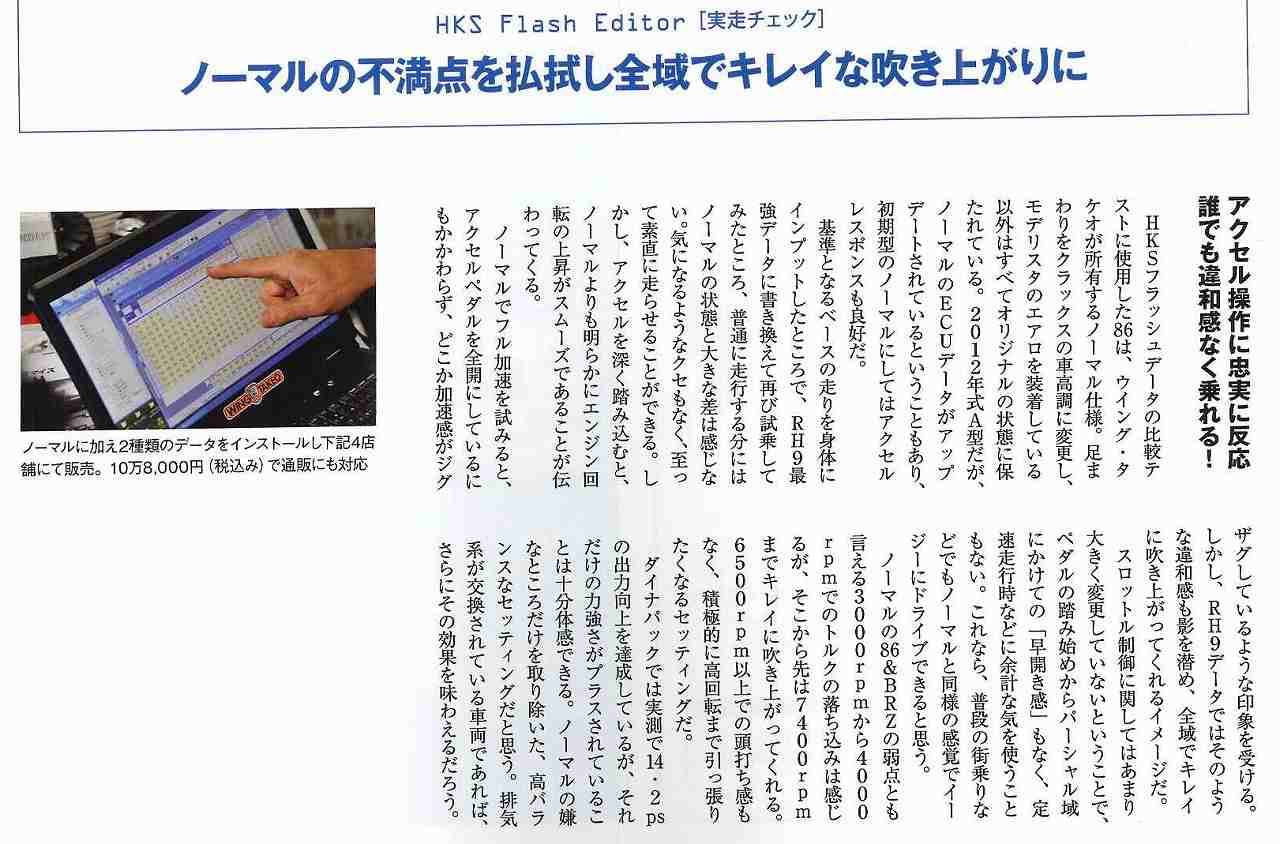 HKS Flash Editor [実走チェック]
ノーマルの不満点を払拭し全域でキレイな吹き上がりに
アクセル操作に忠実に反応
誰でも違和感なく乗れる！
HKSフラッシュデータの比較テ
ストに使用した86は、ウイング・タ
ケオが所有するノーマル仕様。足ま
わりをクラックスの車高調に変更し、
モデリスタのエアロを装着している
以外はすべてオリジナルの状態に保
たれている。2012年式A型だが、
ノーマルのECUデータがアップ
デートされているということもあり、
初期型のノーマルにしてはアクセル
レスポンスも良好だ。
基準となるベースの走りを身体に
インプットしたところで、RH9最
強データに書き換えて再び試乗して
みたところ、普通に走行する分には
ノーマルの状態と大きな差は感じな
い。気になるようなクセもなく、至っ
て素直に走らせることができる。し
かし、アクセルを深く踏み込むと、
ノーマルよりも明らかにエンジン回
転の上昇がスムーズであることが伝
わってくる。
ノーマルでフル加速を試みると、
アクセルペダルを全開にしているに
もかかわらず、どこか加速感がジグ
ザグしているような印象を受ける。
しかし、RH9データではそのよう
な違和感も影を潜め、全域でキレイ
に吹き上がってくれるイメージだ。
スロットル制御に関してはあまり
大きく変更していないということで、
ペダルの踏み始めからパーシャル域
にかけての「早開き感」もなく、定
速走行時などに余計な気を使うこと
もない。これなら、普段の街乗りな
どでもノーマルと同様の感覚でイー
ジーにドライブできると思う。
ノーマルの86&BRZの弱点とも
言える3000rpmから4000
rpmでのトルクの落ち込みは感じ
るが、そこから先は7400rpm
までキレイに吹き上がってくれる。
6500rpm以上での頭打ち感も
なく、積極的に高回転まで引っ張り
たくなるセッティングだ。
ダイナパックでは実測で14・2ps
の出力向上を達成しているが、それ
だけの力強さがプラスされているこ
とは十分体感できる。ノーマルの嫌
なところだけを取り除いた、高バラ
ンスなセッティングだと思う。排気
系が交換されている車両であれば、
さらにその効果を味わえるだろう。
WING TAKEO
ノーマルに加え2種類のデータをインストールし下記4店
舗にて販売。10万8,000円（税込み）で通販にも対応